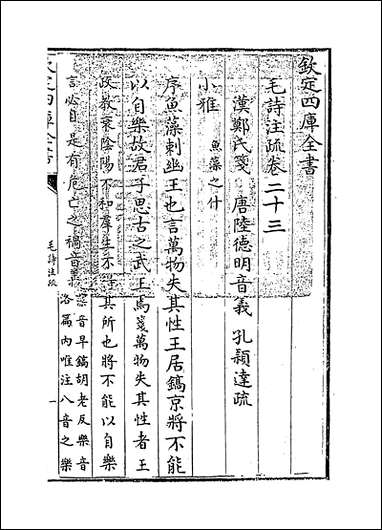 欽定四庫全書
毛詩注疏卷二十三
漢鄭氏箋 唐陸德明音義 孔穎達疏
小雅 魚藻之什
序魚藻刺幽王也言萬物失其性王居鎬京將不能
以自樂故君子思古之武王焉箋萬物失其性者王
政教衰陰陽不和羣生不得其所也將不能以自樂
言必自是有危亡之禍音義藻音早鎬胡老反樂音
洛篇内唯注八音之樂
欽定四庫全書
毛詩注疏
一